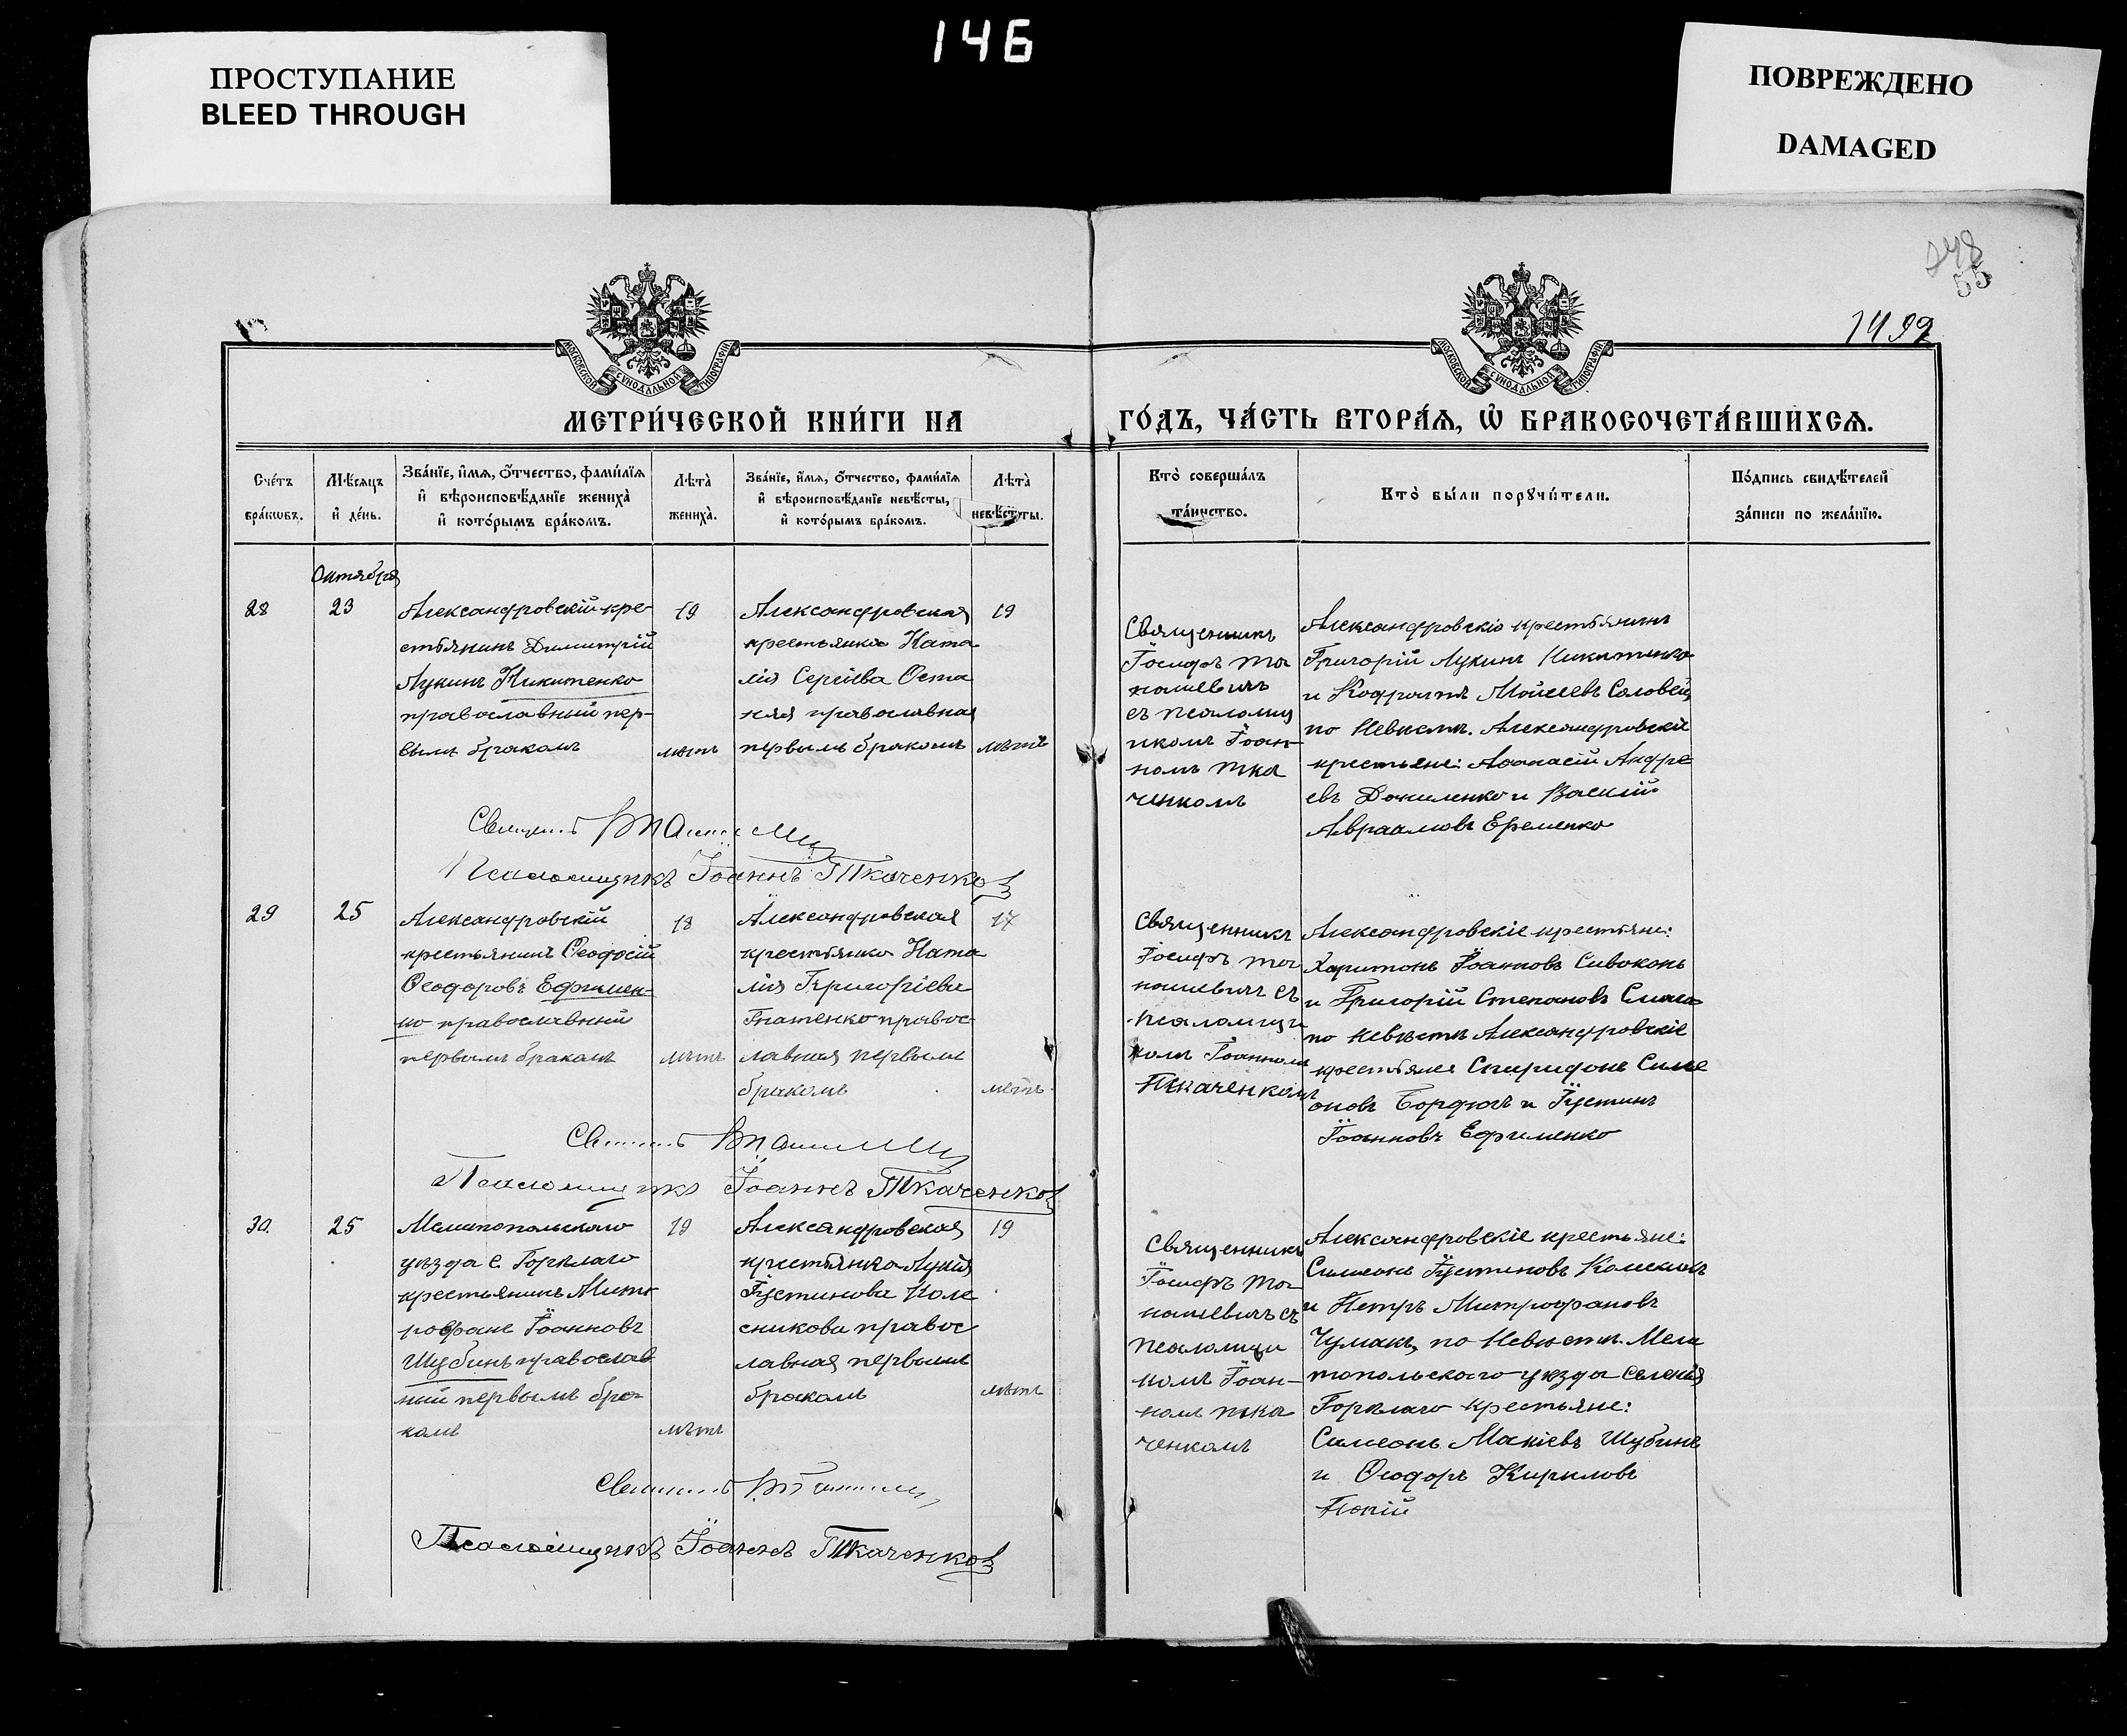 146
ПРОСТУПАНИЕ
BLEED THROUGH
ПОВРЕЖДЕНО
DAMAGED
248
55
1499
МОСКОВСКОЙ СѴНОДАЛЬНОЙ ТИПОГРАФІИ
МОСКОВСКОЙ СѴНОДАЛЬНОЙ ТИПОГРАФІИ
МЕТРИ́ЧЕСКОЙ КНИ́ГИ НА
ГО́ДЪ, ЧА́СТЬ ВТОРА́Ѧ, Ѽ БРАКОСОЧЕТА́ВШИХСѦ.
Сче́тъ
бра́кѡвъ.
Мѣ́сѧцъ
и҆ де́нь.
Зва́нїе, и҆́мѧ, ѻ҆́тчество, фами́лїѧ
и҆ вѣроисповѣ́данїе жениха̀
и҆ кото́рымъ бра́комъ.
Лѣта̀
жениха̀.
Зва́нїе, и҆́мѧ, ѻ҆́тчество, фами́лїѧ
и҆ вѣроисповѣ́данїе невѣ́сты,
и҆ кото́рымъ бра́комъ.
Лѣта̀
невѣ́сты.
Кто̀ соверша́лъ
та́инство.
Кто̀ бы́ли порꙋчи́тели.
По́дпись свидѣ́телей
за́писи по жела́нїю.
Октября
28
23
Александровскій кре-
стьянинъ Димитрій
Лукинъ Никитенко
православный пер-
вымъ бракомъ
19
лѣтъ
Александровская
крестьянка Ната
лія Сергіева Оста
православная
первымъ бракомъ
19
лѣтъ
Священникъ
Іосифъ
съ псаломщ
икомъ Іоан-
номъ Тка
ченкомъ
Александровскіе крестьянинъ
Григорій Лукинъ Никитенко
и Кодратъ Мойсеевъ Соловей,
по Невѣстѣ. Александровскіе
крестьяне: Аѳанасій Андре
евъ Даниленко и Василій
Авраамовъ Еременко
Псаломщикъ Іоаннъ Ткаченко
29
25
Александровскій
крестьянинъ Ѳеодосій
Ѳеодоровъ Ефимен-
ко православный
первымъ бракомъ
18
лѣтъ
Александровская
крестьянка Ната
лія Григоріева
Гнатенко правос-
лавная первымъ
бракомъ
17
лѣтъ.
Священникъ
Іосифъ
съ
псаломщи
комъ Іоанномъ
Ткаченкомъ
Александровскіе крестьяне:
Харитонъ Іоанновъ Сивоконь
и Григорій Степановъ
по невѣстѣ Александровскіе
крестьяне Спиридонъ Симе
оновъ и Іустинъ
Іоанновъ Ефименко
Псаломщикъ Іоаннъ Ткаченко
30.
25
Мелитопольскаго
уѣзда с. Горѣлаго
крестьянинъ Мит
рофанъ Іоанновъ
Шубинъ православ
ный первымъ бра-
комъ
19
лѣтъ
Александровская
крестьянка Лукія
Іустинова Коле
сникова правос
лавная первымъ
бракомъ
19
лѣтъ
Священникъ
Іосифъ
съ
псаломщи
комъ Іоан-
номъ Тка
ченкомъ
Александровскіе крестьяне:
Симеонъ Іустиновъ
и Петръ Митрофановъ
Чумакъ, по Невѣстѣ. Мели
топольскаго уѣзда селенія
Горѣлаго крестьяне:
Симеонъ Шубинъ
и Ѳеодоръ Кириловъ
Псаломщикъ Іоаннъ Ткаченко